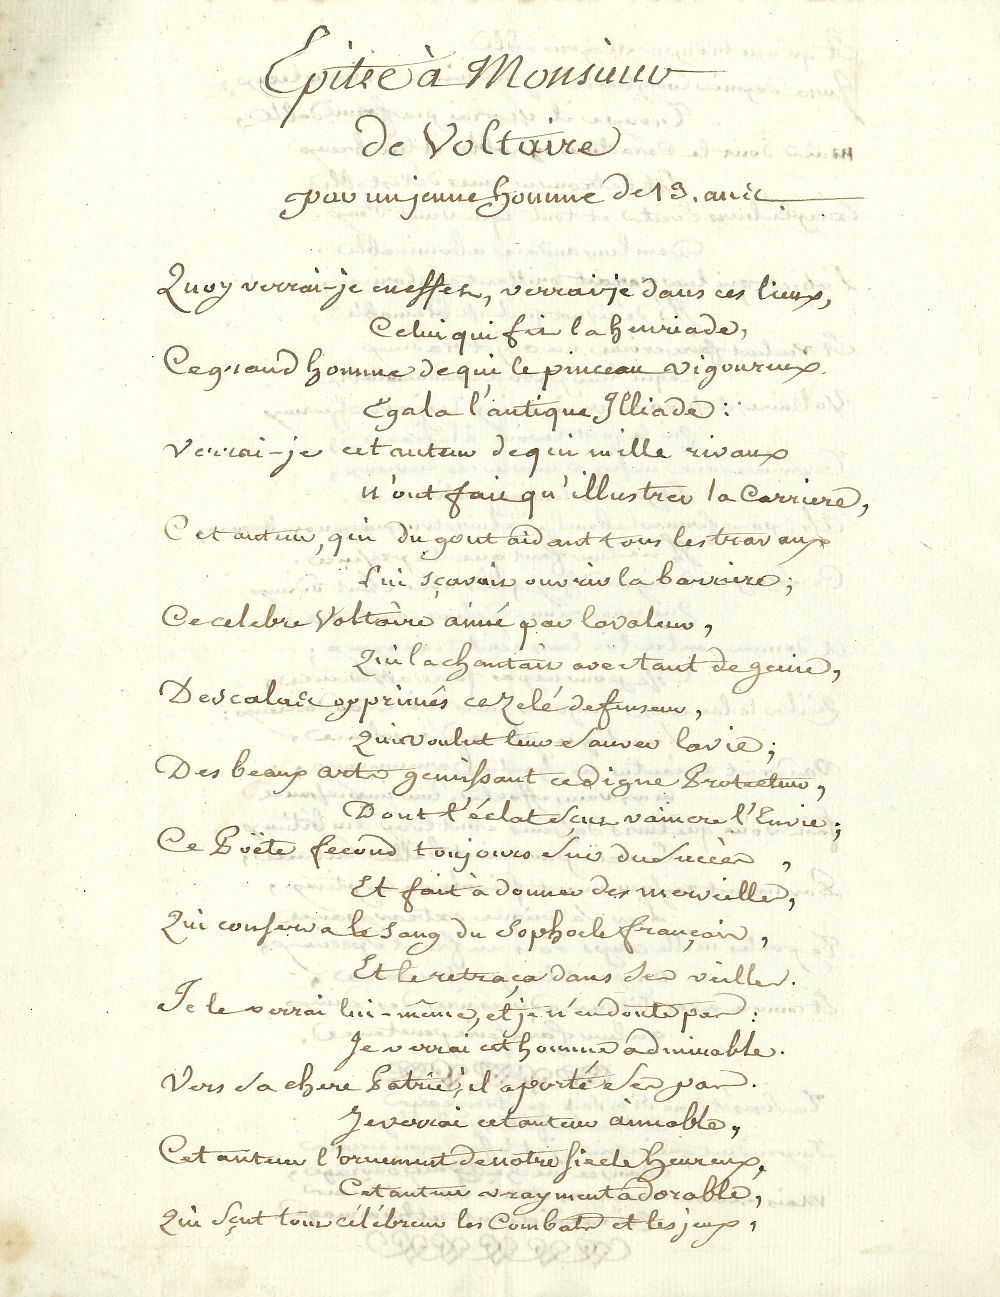 Epitre à Monsieur
de Voltaire
par un jeune homme de 13. ans
Quoy verrai-je en effet, verrai je dans ces lieux,
Celui qui fit la henriade,
Ce grand homme de qui le pinceau vigoureux.
Egala l'antique Illiade:
Verrai-je cet auteur de qui mille rivaux
n'ont fait qu'illustrer la Carriere,
Cet auteur, qui du gout aidant tous les travaux
Lui sçavait ouvrir la barriere;
Ce celebre Voltaire aimé par la valeur,
Qui la chantait avec tant de genie,
Des calas opprimés ce zelé defenseur,
Qui voulut leur sauver la vie;
Des beaux arts gemissant ce digne Protecteur,
Dont l'éclat sçut vaincre l'Envie;
Ce Poëte fecond toujours sur du succès,
Et fait à donner des merveilles,
Qui conserva le sang du Sophocle français,
Et le retraça dans ses veilles.
Je le verrai lui-même, et je n'en doute pas:
Je verrai cet homme admirable.
Vers sa chere Patrie, il a porté ses pas.
Je verrai cet auteur aimable,
Cet auteur l'ornement de notre siecle heureux,
Cet auteur vrayment adorable,
Qui sçut tour célébrer les Combats et les jeux,